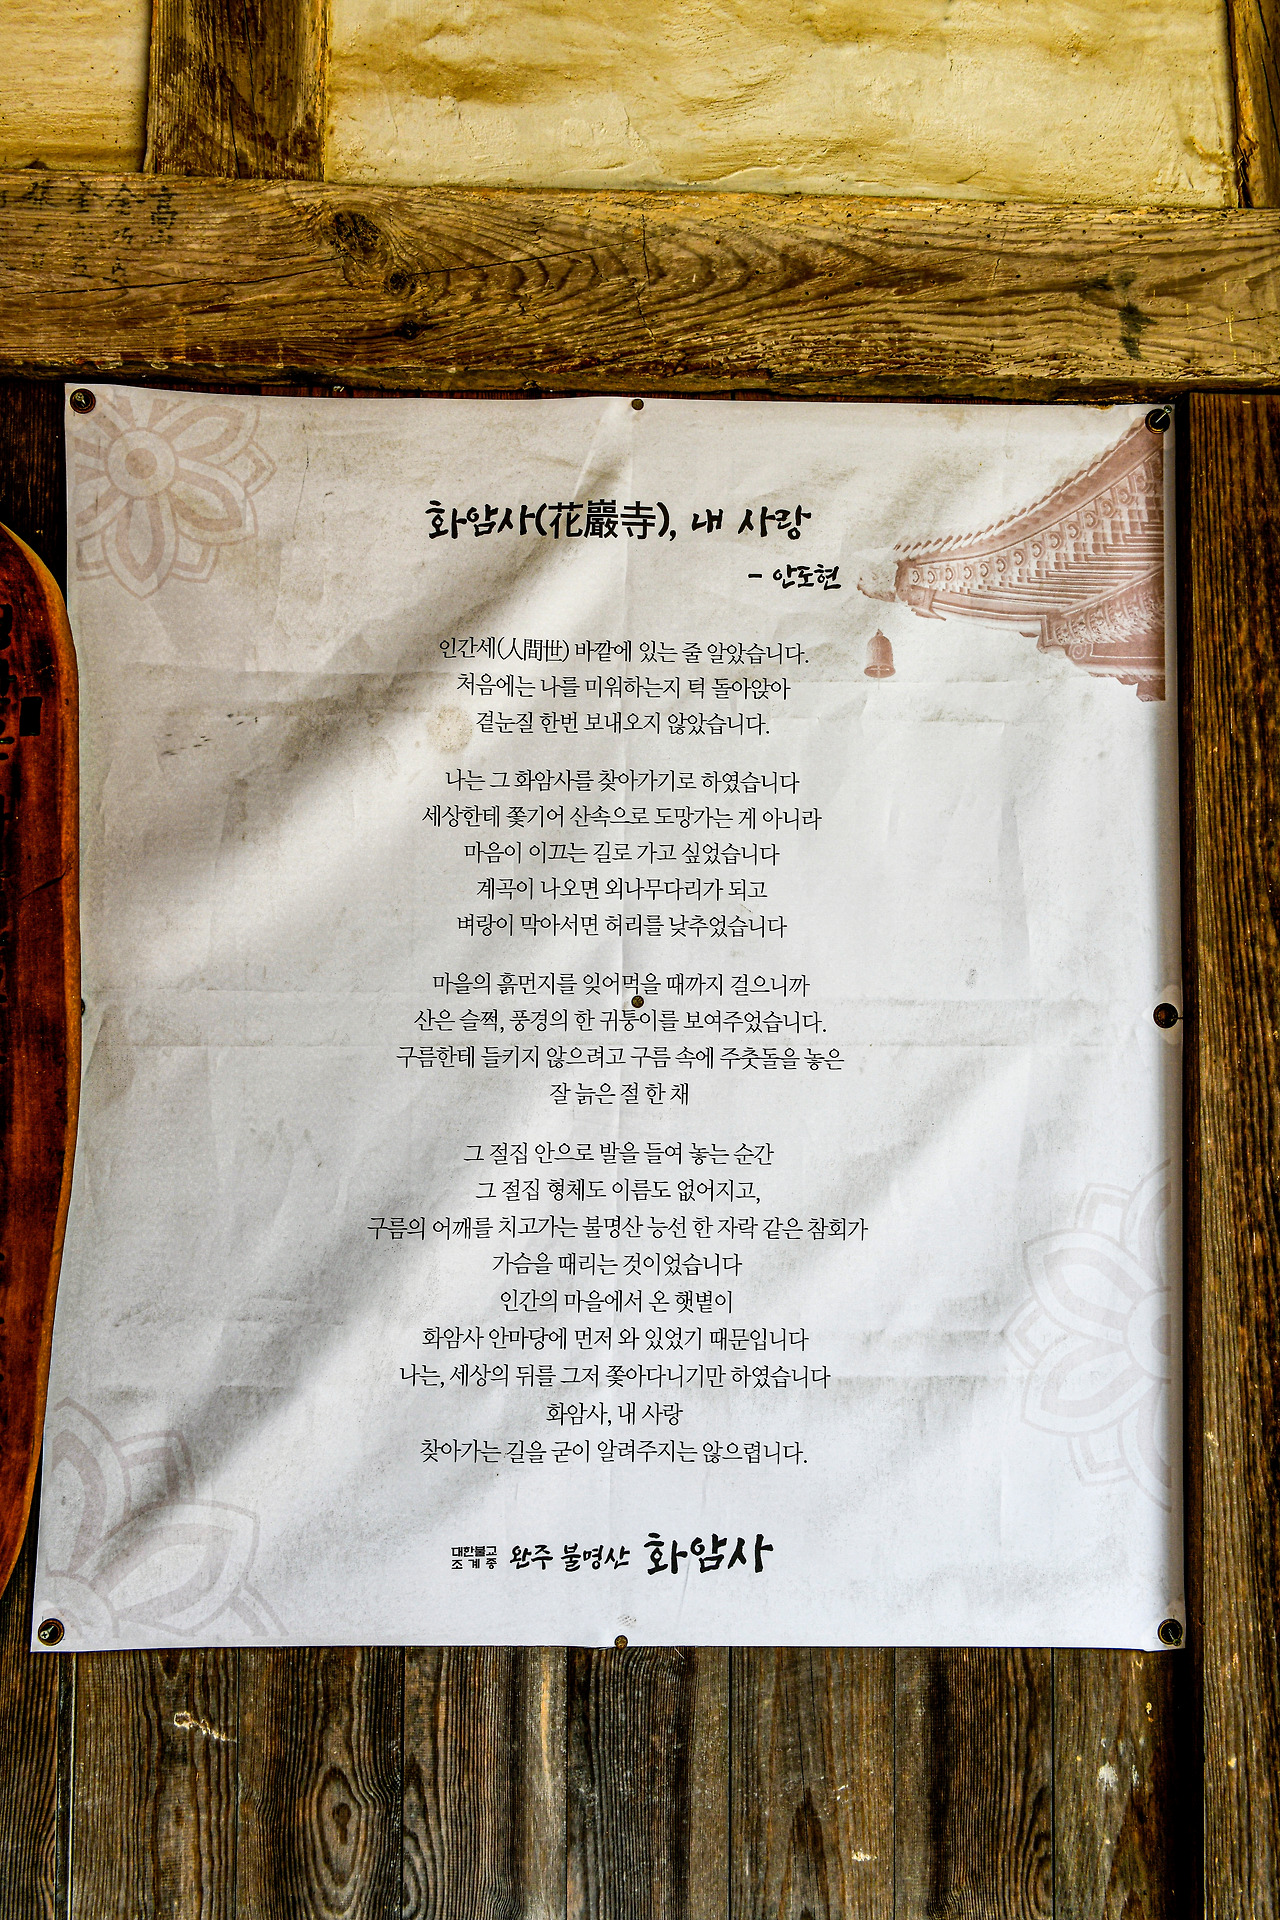 화암사(花巖寺), 내 사랑
- 안도현
인간세(人間世) 바깥에 있는 줄 알았습니다.
처음에는 나를 미워하는지 턱 돌아앉아
곁눈질 한번 보내오지 않았습니다.
나는 그 화암사를 찾아가기로 하였습니다
세상한테 쫓기어 산속으로 도망가는 게 아니라
마음이 이끄는 길로 가고 싶었습니다
계곡이 나오면 외나무다리가 되고
벼랑이 막아서면 허리를 낮추었습니다
마을의 흙먼지를 잊어먹을 때까지 걸으니까
산은 슬쩍, 풍경의 한 귀퉁이를 보여주었습니다.
구름한테 들키지 않으려고 구름 속에 주춧돌을 놓은
잘 늙은 절 한 채
그 절집 안으로 발을 들여 놓는 순간
그 절집 형체도 이름도 없어지고,
구름의 어깨를 치고가는 불명산 능선 한 자락 같은 참회가
가슴을 때리는 것이었습니다
인간의 마을에서 온 햇볕이
화암사 안마당에 먼저 와 있었기 때문입니다
나는, 세상의 뒤를 그저 쫓아다니기만 하였습니다
화암사, 내 사랑
찾아가는 길을 굳이 알려주지는 않으렵니다.
대한불교 조계종 완주 불명산 화암사